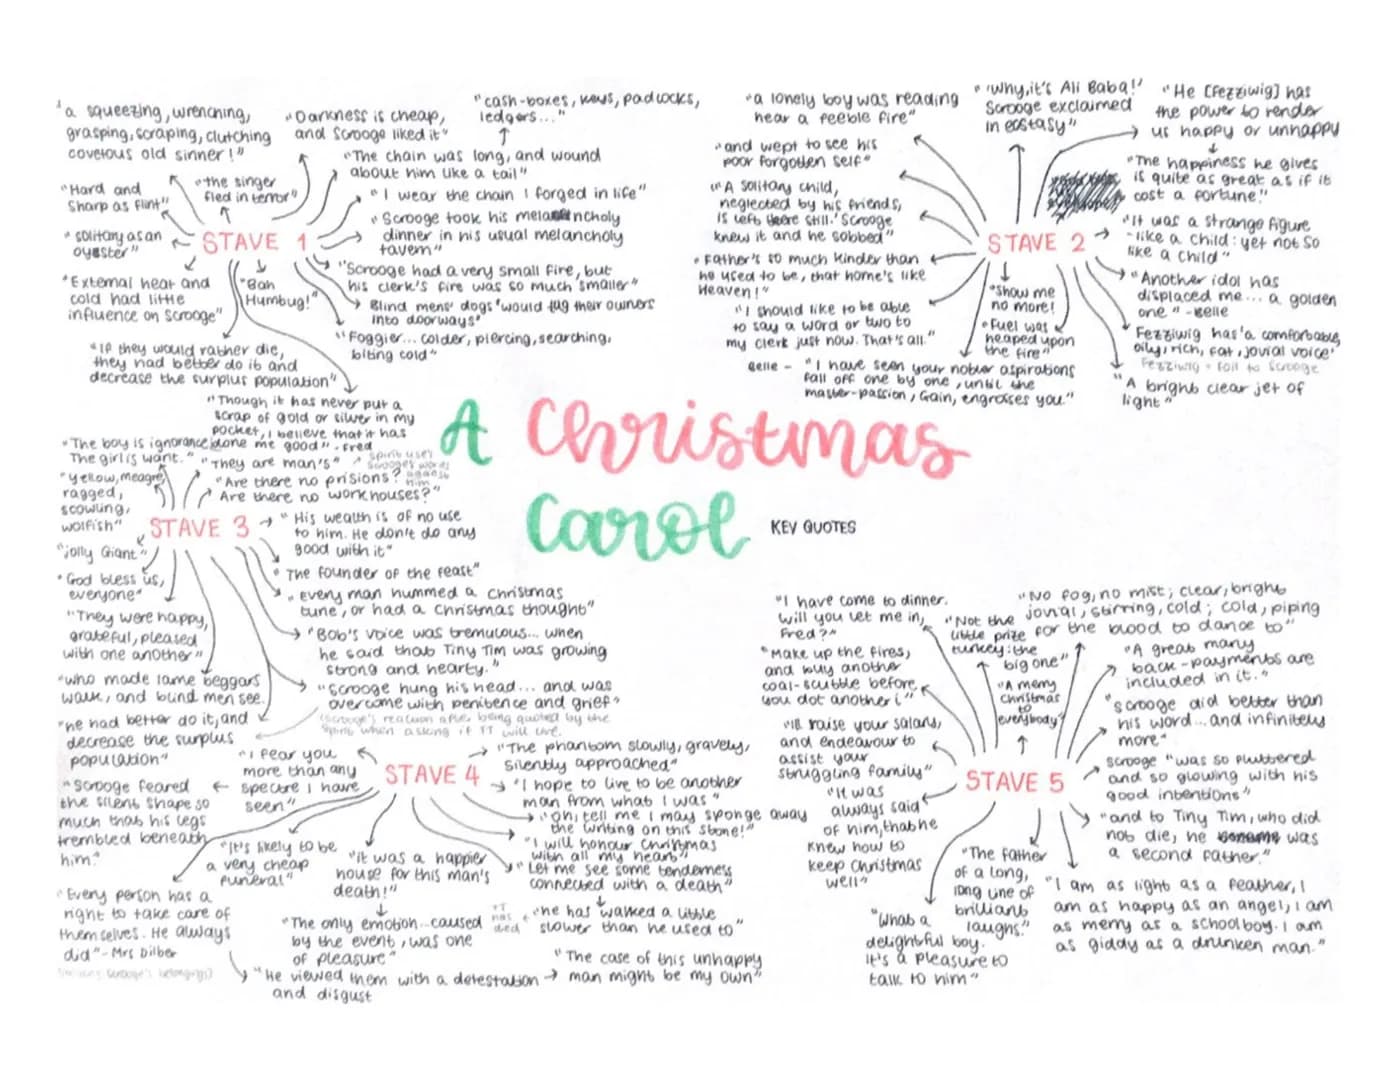 "a squeezing, wrenching,
grasping, scraping, clutching
covetous old sinner!"
"Darkness is cheap,
and Scrooge liked it"
"cash-boxes, keys, padlocks,
ledgers..."
"The chain was long, and wound
about him like a tail"
"Hard and
Sharp as flint"
"the singer
fled in terror"
"I wear the chain I forged in life"
"Scrooge took his melancholy
dinner in his usual melancholy
tavern"
"solitary as an
oyster"
STAVE 1
"External heat and
cold had little
influence on Scrooge"
"Bah
Humbug!"
"Scrooge had a very small fire, but
his clerk's fire was so much smaller"
Blind mens' dogs 'would tug their owners
into doorways'
"Foggier... colder, piercing, searching,
biting cold"
"If they would rather die,
they had better do it and
decrease the surplus population"
"Though it has never put a
scrap of gold or silver in my
pocket, I believe that it has
done me good" - Fred
"a lonely boy was reading
near a feeble fire"
"'Why, it's Ali Baba!'
Scrooge exclaimed
in ecstasy"
"He [Fezziwig] has
the power to render
us happy or unhappy
"The happiness he gives
is quite as great as if it
cost a fortune."
"and wept to see his
poor forgotten self"
"'A solitary child,
neglected by his friends,
is left there still.' Scrooge
knew it and he sobbed"
STAVE 2
"It was a strange figure
-like a child: yet not so
like a child"
"Father's so much kinder than
he used to be, that home's like
Heaven!"
"Another idol has
displaced me... a golden
one" -Belle
"I should like to be able
to say a word or two to
my clerk just now. That's all."
"Show me
no more!
"Fuel was
heaped upon
the fire"
Fezziwig has 'a comfortable,
oily, rich, fat, jovial voice'
Fezziwig = foil to Scrooge
Belle - "I have seen your nobler aspirations
fall off one by one, until the
master-passion, Gain, engrosses you."
"A bright clear jet of
light"
A Christmas
Carol
KEY QUOTES
"The boy is ignorance
The girl is want."
"They are man's"
spirit uses
Scrooge's words
against
him
"Yellow, meagre,
ragged,
scowling,
wolfish"
"Are there no prisions?
Are there no workhouses?"
STAVE 3
"His wealth is of no use
to him. He don't do any
good with it"
"jolly Giant"
"God bless us,
everyone"
"The founder of the feast"
"every man hummed a Christmas
tune, or had a Christmas thought"
"They were happy,
grateful, pleased
with one another"
"Bob's voice was tremulous... when
he said that Tiny Tim was growing
strong and hearty."
"who made lame beggars
walk, and blind men see.
"Scrooge hung his head... and was
overcome with penitence and grief"
(Scrooge's reaction after being quoted by the
spirit when asking if TT will live.
"he had better do it, and
decrease the surplus
population"
"I fear you
more than any
spectre I have
seen"
STAVE 4
"The phantom slowly, gravely,
silently approached"
"I hope to live to be another
man from what I was"
"oh, tell me I may sponge away
the writing on this stone!"
"I will honour Christmas
with all my heart"
"Let me see some tenderness
connected with a death"
"Scrooge feared
the silent shape so
much that his legs
trembled beneath
him."
"It's likely to be
a very cheap
funeral"
"it was a happier
house for this man's
death!"
"Every person has a
right to take care of
themselves. He always
did" - Mrs Dilber
"The only emotion... caused
by the event, was one
of pleasure"
TT
has
died
"he has walked a little
slower than he used to"
"He viewed them with a detestation
and disgust
"The case of this unhappy
man might be my own"
"I have come to dinner.
Will you let me in,
Fred?"
"Not the
little prize
turkey: the
big one"
"No fog, no mist; clear, bright,
jovial, stirring, cold; cold, piping
for the blood to dance to"
"Make up the fires,
and buy another
coal-scuttle before
you dot another i"
"A merry
Christmas
to
everybody!
"A great many
back-payments are
included in it."
"Scrooge did better than
his word... and infinitely
more"
"Ill raise your salary,
and endeavour to
assist your
struggling family"
STAVE 5
Scrooge "was so fluttered
and so glowing with his
good intentions"
"It was
always said
of him, that he
knew how to
keep Christmas
well"
"and to Tiny Tim, who did
not die, he was
a second father."
"The father
of a long,
long line of
brilliant
laughs."
"I am as light as a feather, I
am as happy as an angel, I am
as merry as a schoolboy. I am
as giddy as a drunken man."
"What a
delightful boy.
It's a pleasure to
talk to him"